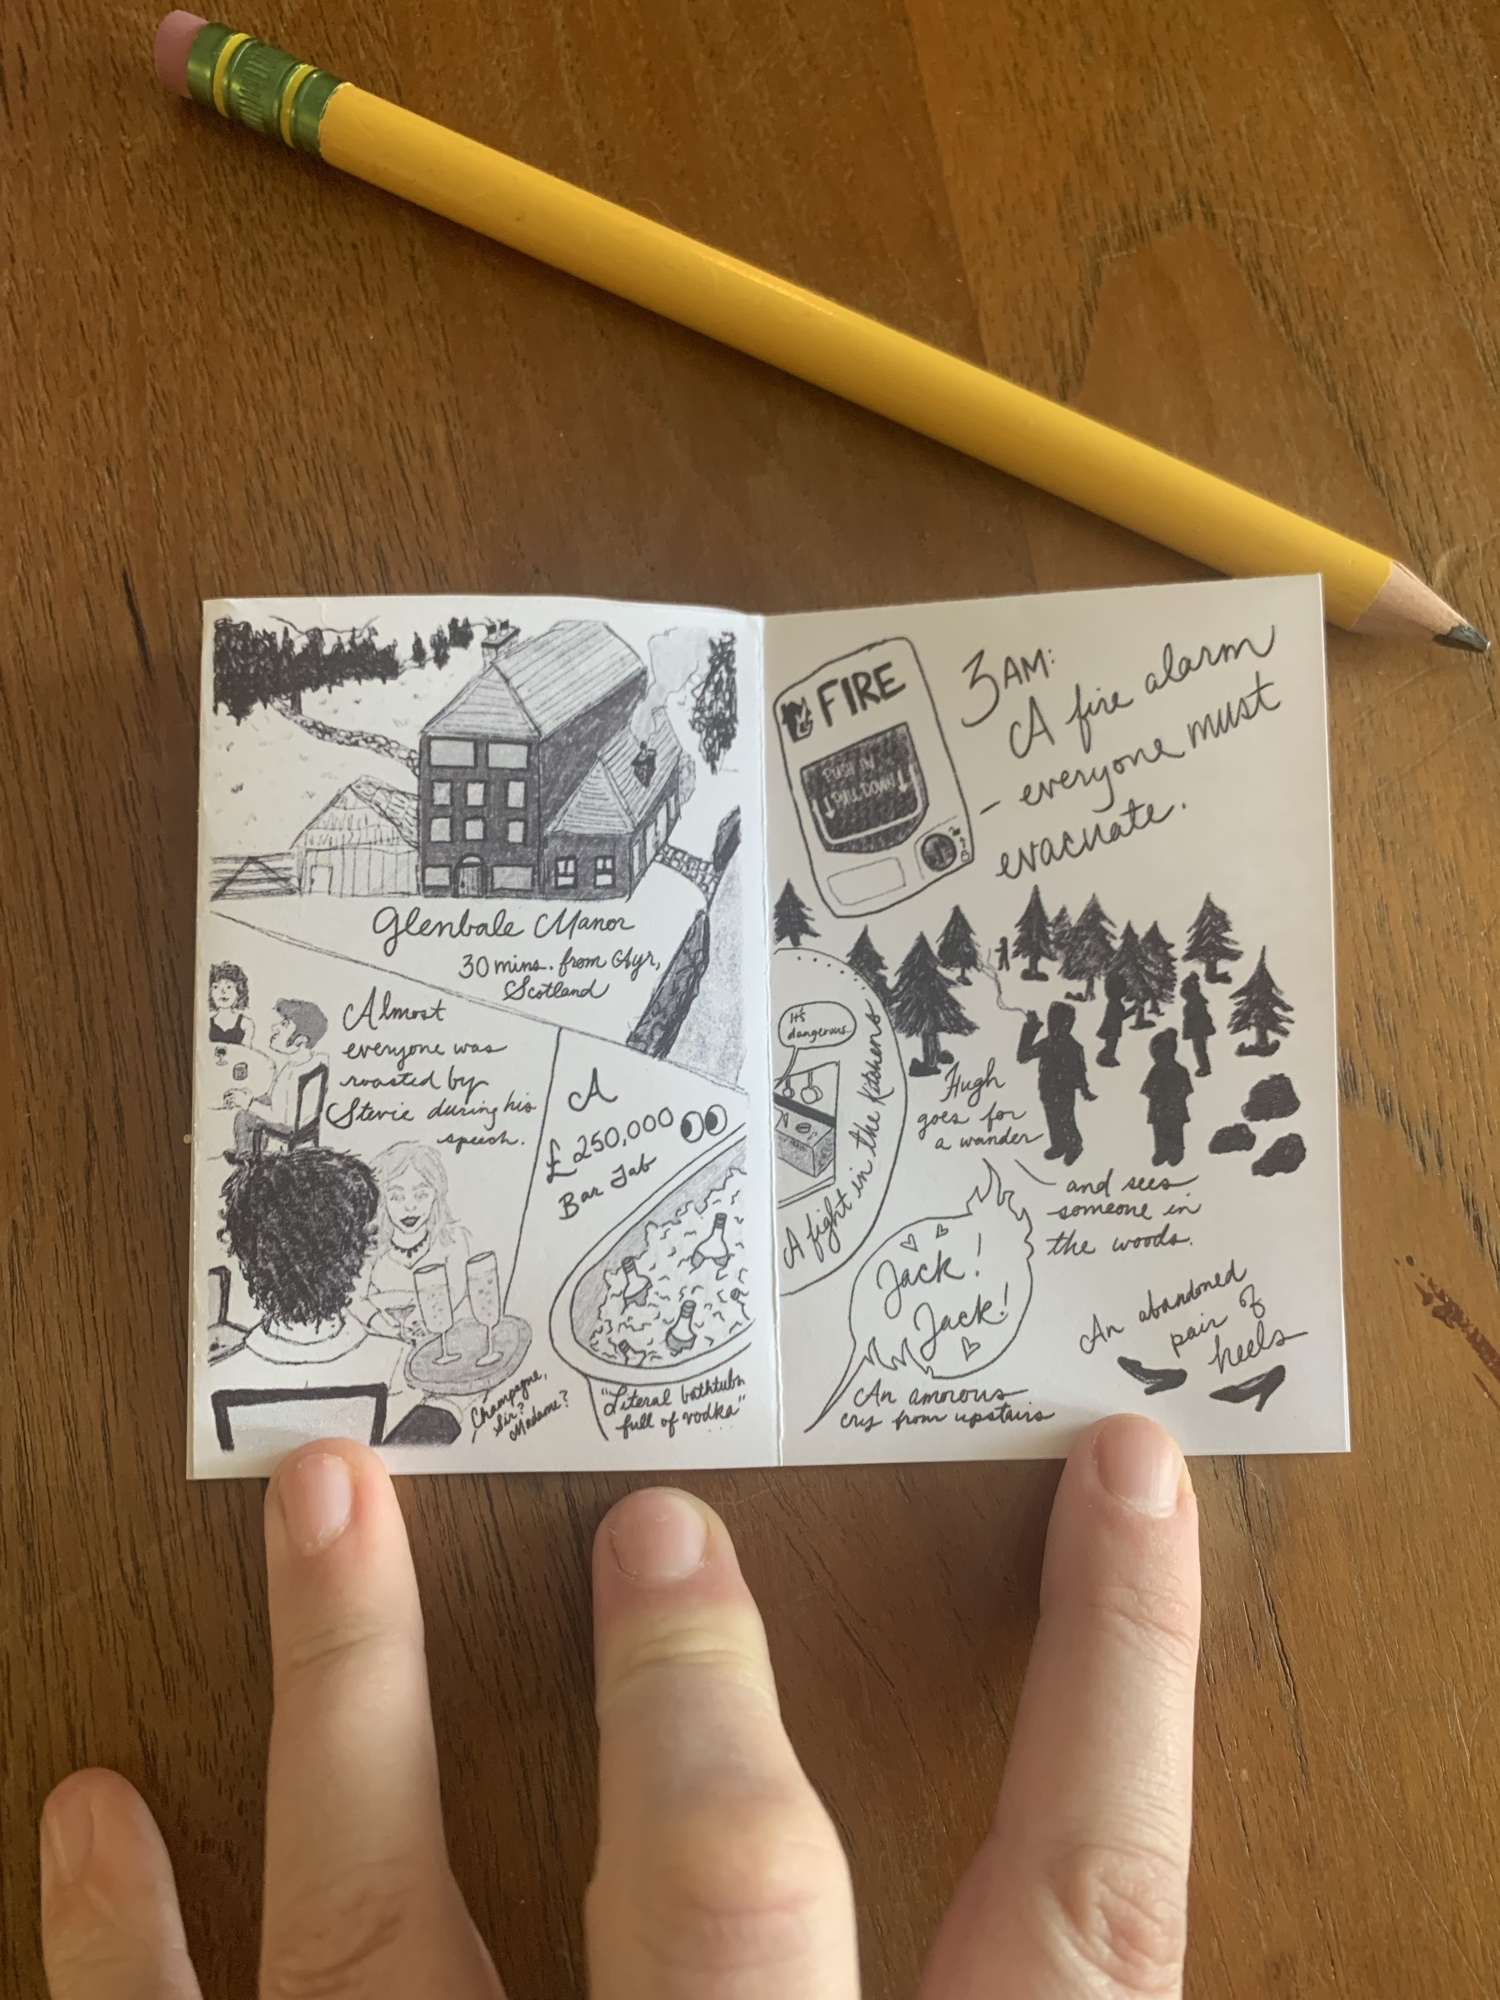 Glenbale Manor
30 mins. from Ayr,
Scotland
Almost
everyone was
roasted by
Stevie during his
speech.
Champagne,
Sir?
Madame?
A
£250,000
Bar Tab
"Literal bathtubs
full of vodka"
FIRE
PUSH IN
PULL DOWN
3AM:
A fire alarm
- everyone must
evacuate.
It's
dangerous.
A fight in the kitchens
Hugh
goes for
a wander
and sees
someone in
the woods.
Jack!
Jack!
An amorous
cry from upstairs
An abandoned
pair of
heels